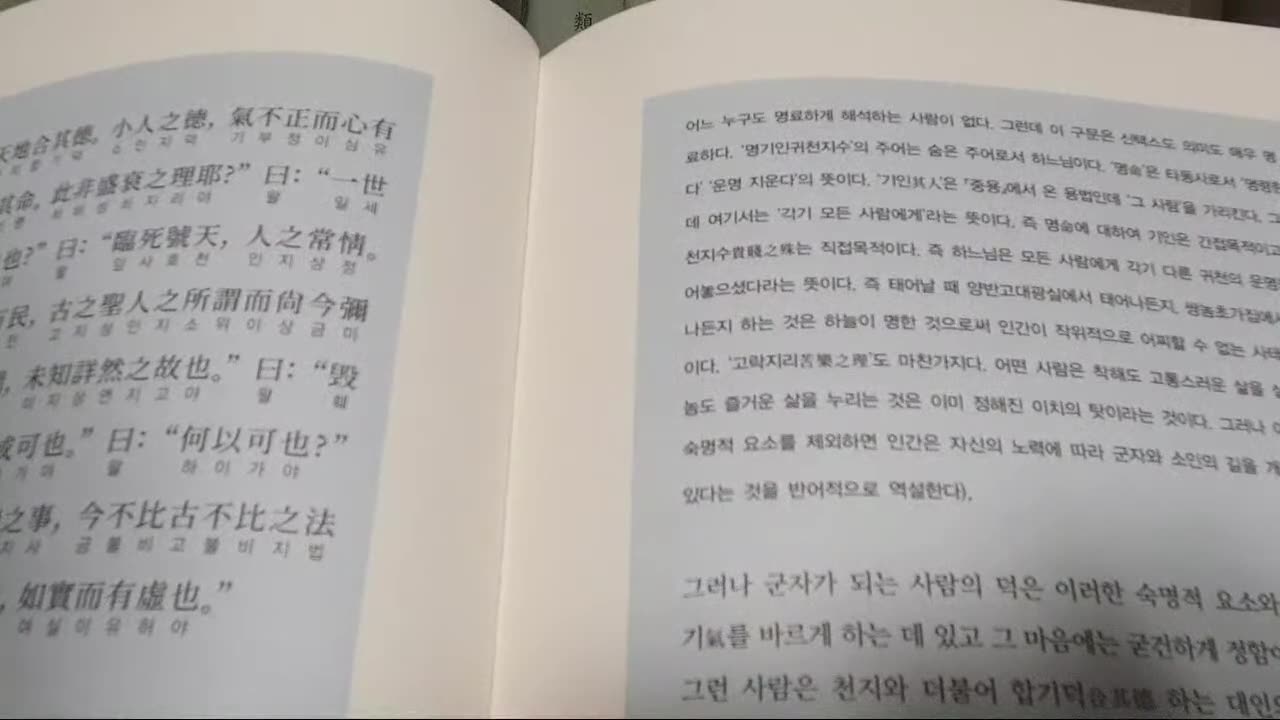 類
天地合其德, 小人之德, 氣不正而心有
소인지덕 기부정이심유
其命, 此非盛衰之理耶?” 曰: “一世
차비성쇠지리야 왈 일세
也?” 曰: “臨死號天, 人之常情。
왈 임사호천 인지상정
民, 古之聖人之所謂而尙今彌
고지성인지소위이상금미
未知詳然之故也。” 曰: “毁
미지상연지고야 왈 훼
可也。” 曰: “何以可也?”
가야 왈 하이가야
之事, 今不比古不比之法
지사 금불비고불비지법
, 如實而有虛也。”
여실이유허야
어느 누구도 명료하게 해석하는 사람이 없다. 그런데 이 구문은 신택스도 의미도 매우 명
료하다. ‘명기인귀천지수’의 주어는 숨은 주어로서 하느님이다. ‘명命’은 타동사로서
다’ ‘운명 지운다’의 뜻이다. ‘기인其人’은 『중용』에서 온 용법인데 ‘그 사람’을 가리킨다. 그
데 여기서는 ‘각기 모든 사람에게’라는 뜻이다. 즉 명命에 대하여 기인은 간접목적이고
천지수貴賤之殊는 직접목적이다. 즉 하느님은 모든 사람에게 각기 다른 귀천의 운명
어놓으셨다라는 뜻이다. 즉 태어날 때 양반고대광실에서 태어나든지, 쌍놈초가집에서
나든지 하는 것은 하늘이 명한 것으로써 인간이 작위적으로 어찌할 수 없는 사태
이다. ‘고락지리苦樂之理’도 마찬가지다. 어떤 사람은 착해도 고통스러운 삶을 살
놈도 즐거운 삶을 누리는 것은 이미 정해진 이치의 탓이라는 것이다. 그러나
숙명적 요소를 제외하면 인간은 자신의 노력에 따라 군자와 소인의 길을
있다는 것을 반어적으로 역설한다).
그러나 군자가 되는 사람의 덕은 이러한 숙명적 요소와
기氣를 바르게 하는 데 있고 그 마음에는 굳건하게 정함이
그런 사람은 천지와 더불어 합기덕合其德 하는 대인